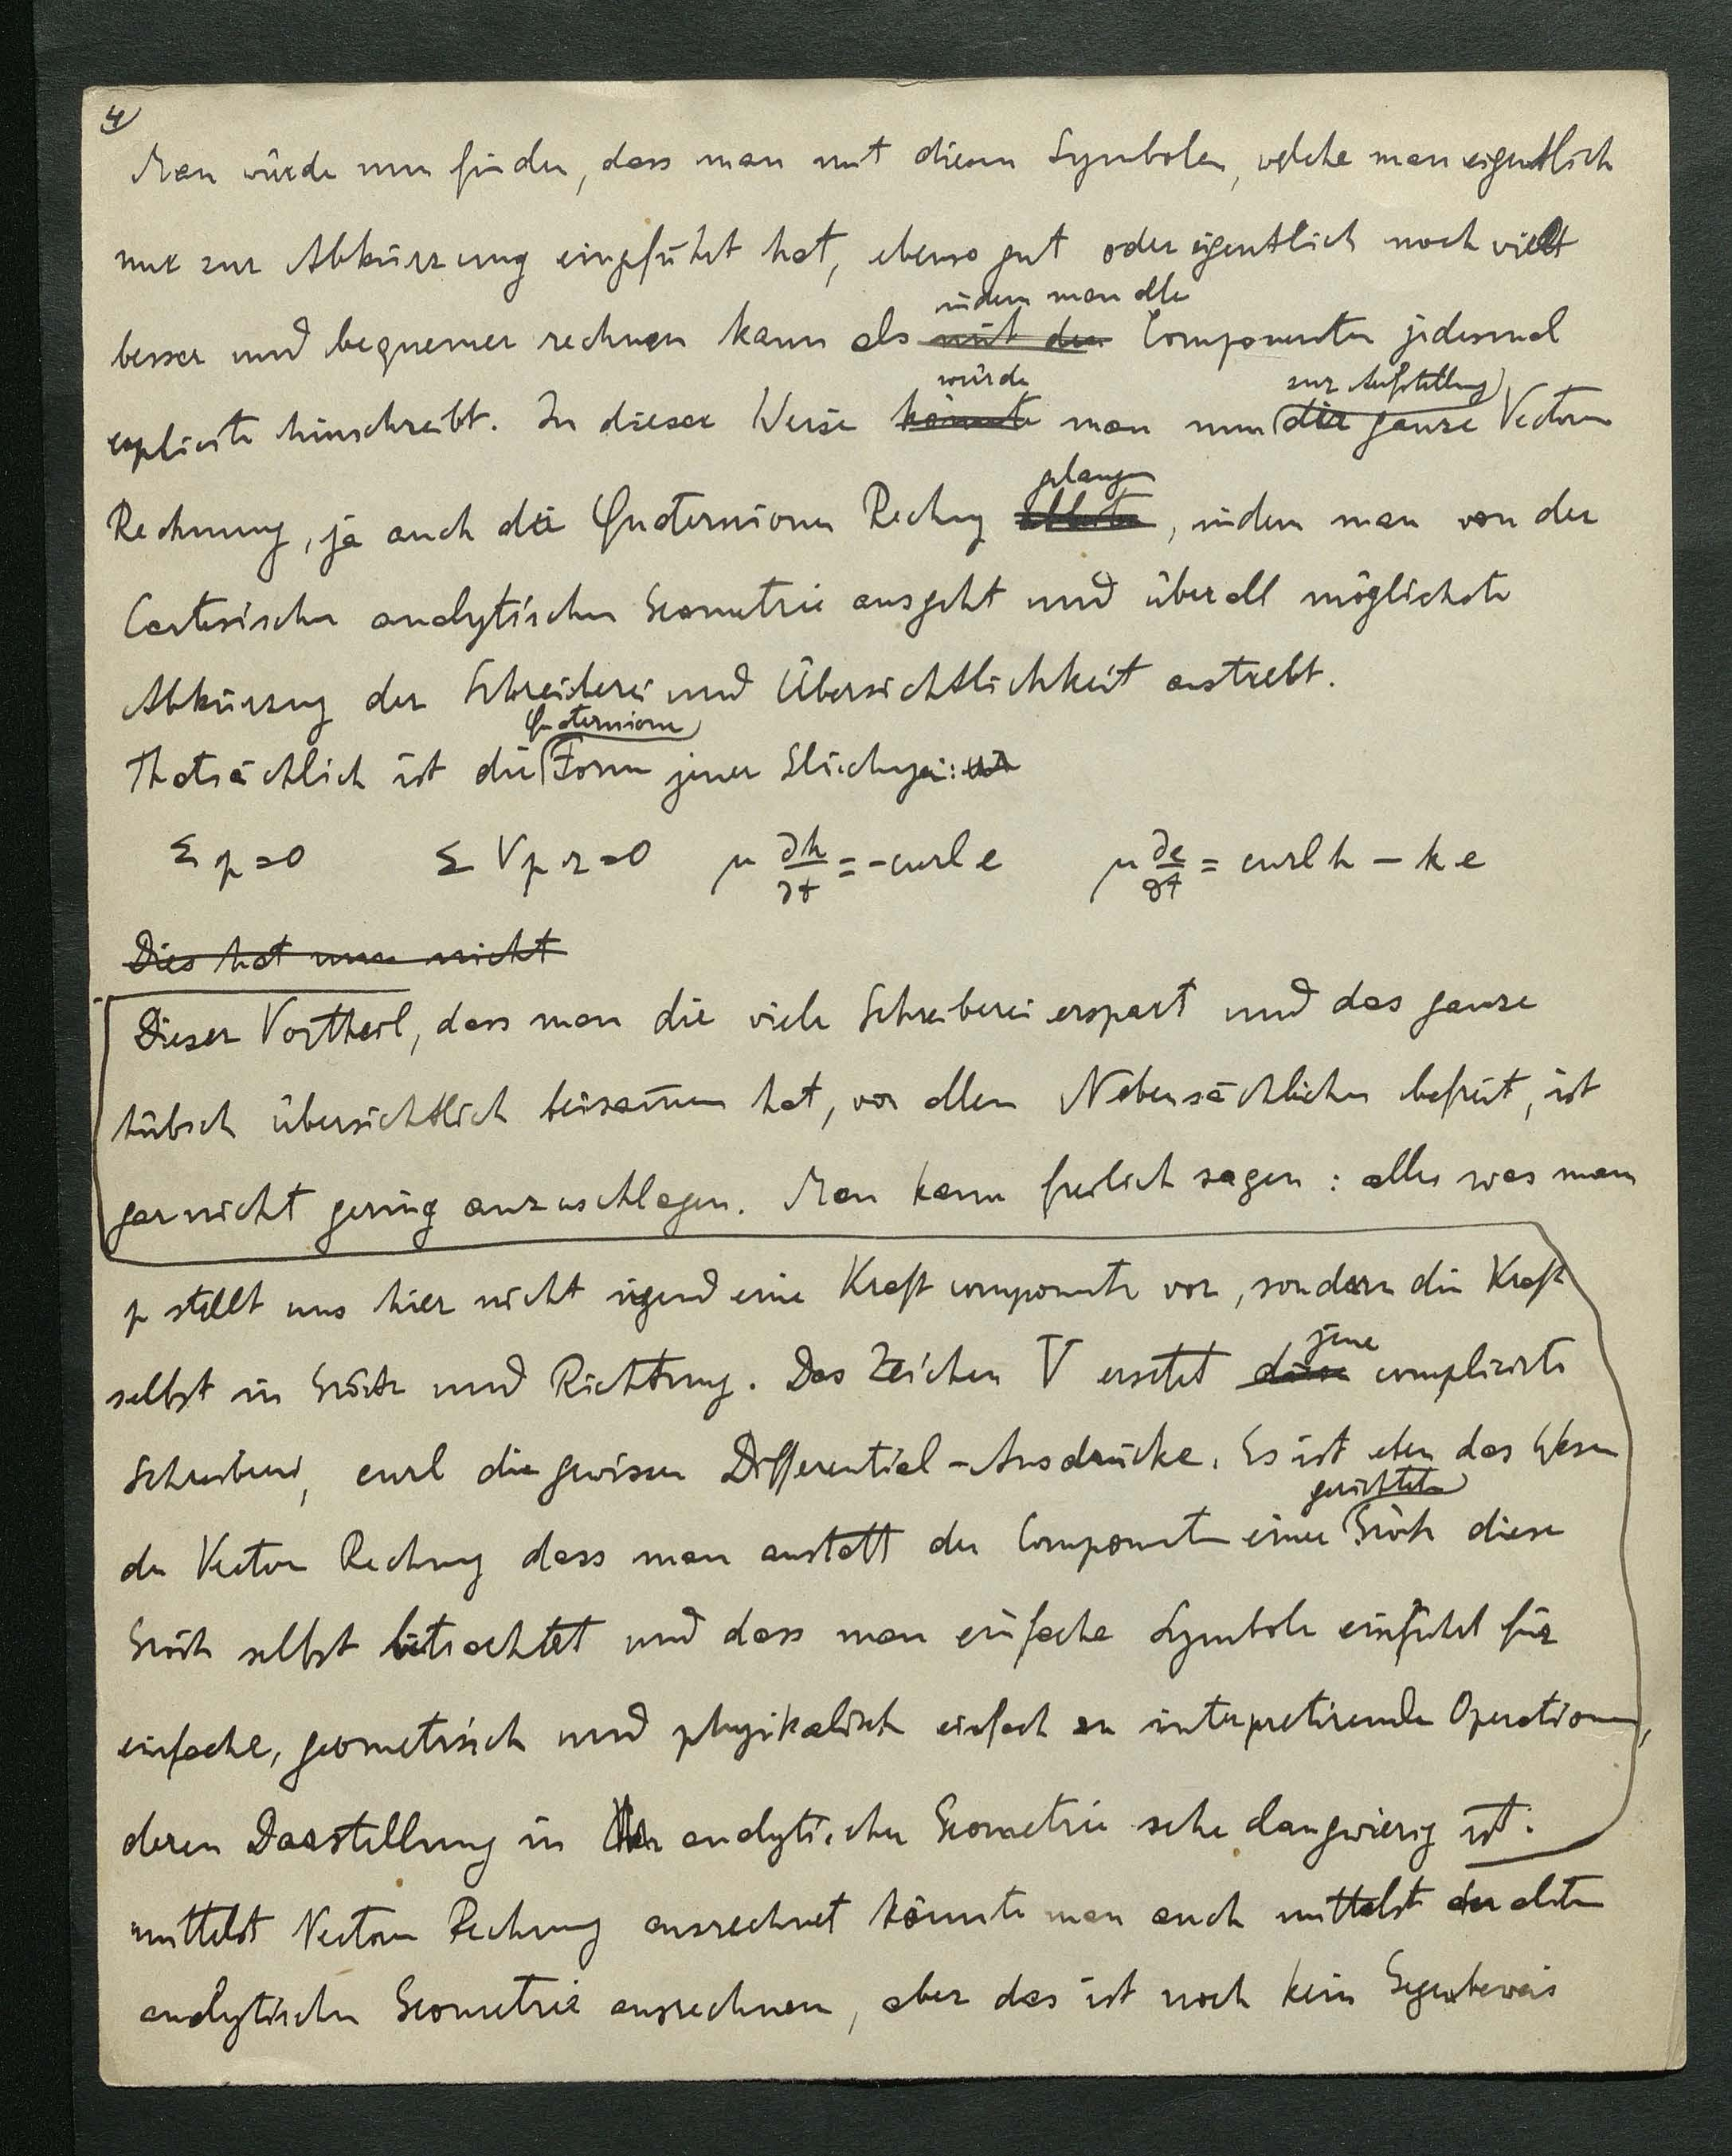 4)
Man würde nun finden, dass man mit diesen Symbolen, welche man eigentlich
nur zur Abkürzung eingeführt hat, ebenso gut oder eigentlich noch viel
indem man alle
besser und bequemer rechnen kann als mit den Componenten jedesmal
würde zur Aufstellung
explicite hinschreibt. In dieser Weise könnte man nun die ganze Vectoren
gelangen
Rechnung, ja auch die Quaternionen Rechng, indem man von der
Cartesischen analytischen Geometrie ausgeht und überall möglichste
Abkürzung der Schreiberei und Übersichtlichkeit anstrebt.
Quaternionen
Thatsächlich ist die Form jener Gleichungen:
Σ p = 0 Σ V p r = 0 μ ∂h/∂t = - curl e μ ∂e/∂t = curl h - k e
Dies hat nun nicht
Dieser Vortheil, dass man die viele Schreiberei erspart und das ganze
hübsch übersichtlich beisamen hat, von allem Nebensächlichen befreit, ist
gar nicht gering anzuschlagen. Man kann freilich sagen: alles was man
p stellt uns hier nicht irgend eine Kraft componente vor, sondern die Kraft
jene
selbst in Grösse und Richtung. Das Zeichen V ersetzt diese complicirte
Schreiberei, curl die gewissen Differential-Ausdrücke. Es ist eben das Wesen
gerichteten
der Vector Rechnung dass man anstatt der Componenten einer Grösse diese
Grösse selbst betrachtet und dass man einfache Symbole einführt für
einfache, geometrisch und physikalisch einfach zu interpretirende Operationen,
deren Darstellung in der analytischen Geometrie sehr langwierig ist.
mittelst Vectoren Rechnung ausrechnet könnte man auch mittelst der alten
analytischen Geometrie ausrechnen, aber das ist noch kein Gegenbeweis